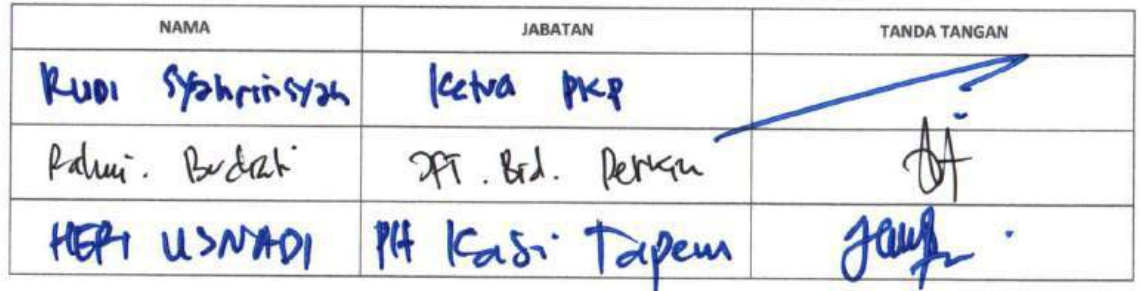 NAMA JABATAN TANDA TANGAN
RUDI Syahrinsyah Ketua PKP
Rahmi. Budiati Bid. Perkim
HERI USNADI PH Kasi Tapem